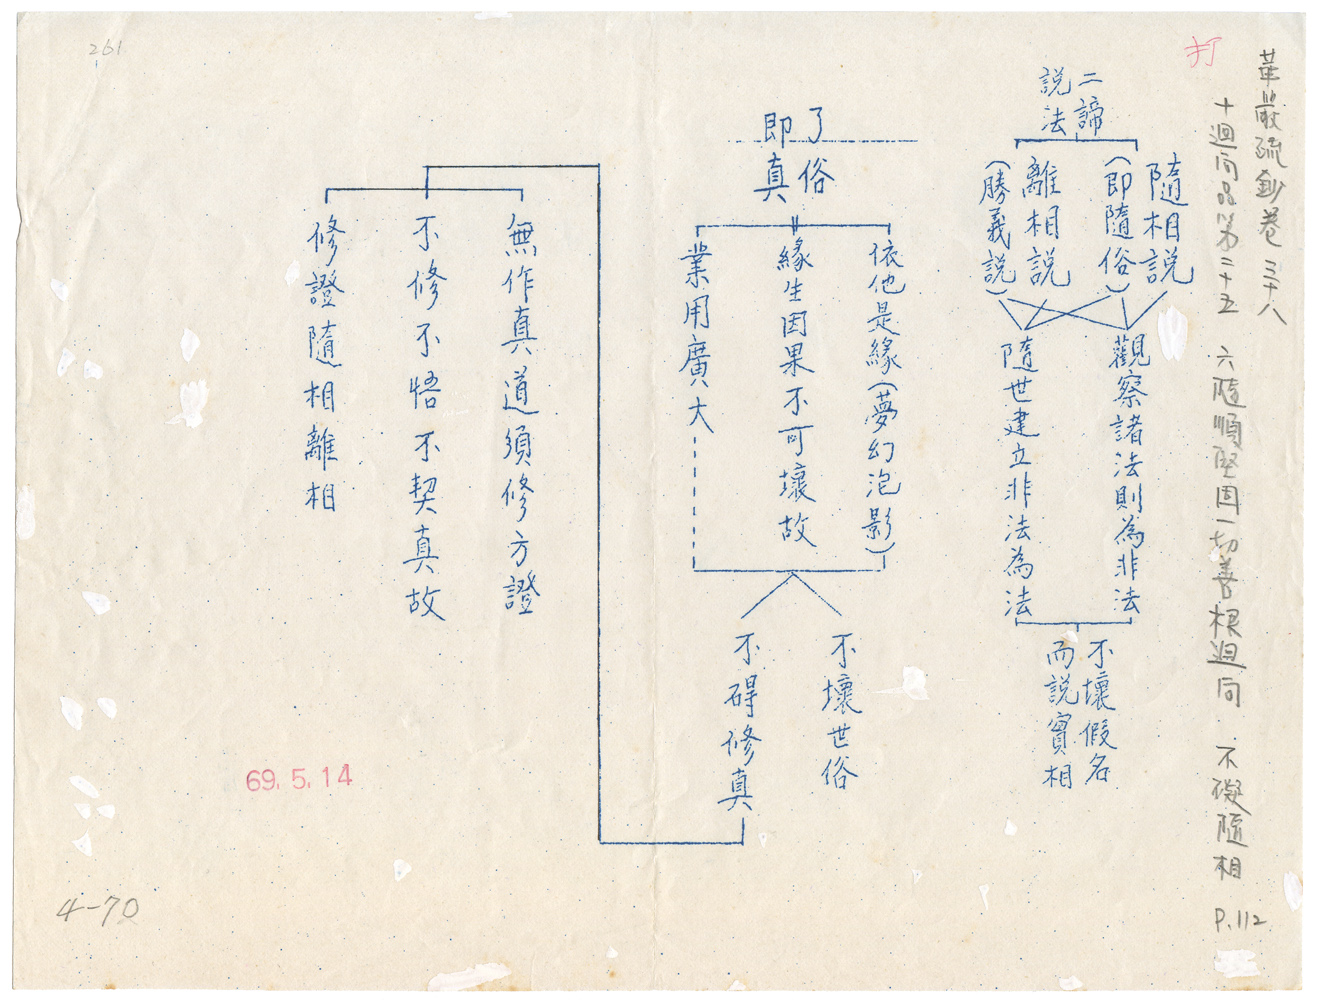 華嚴疏鈔卷三十八
十迴向品第二十五 六隨順堅固一切善根迴向 不礙隨相 P.112
打
二諦
説法
隨相説
(即隨俗)
離相説
(勝義説)
觀察諸法則為非法
隨世建立非法為法
不壞假名
而説實相
了俗
即真
依他是緣(夢幻泡影)
緣生因果不可壞故
業用廣大
不壞世俗
不碍修真
無作真道須修方證
不修不悟不契真故
修證隨相離相
261
69.5.14
4-70